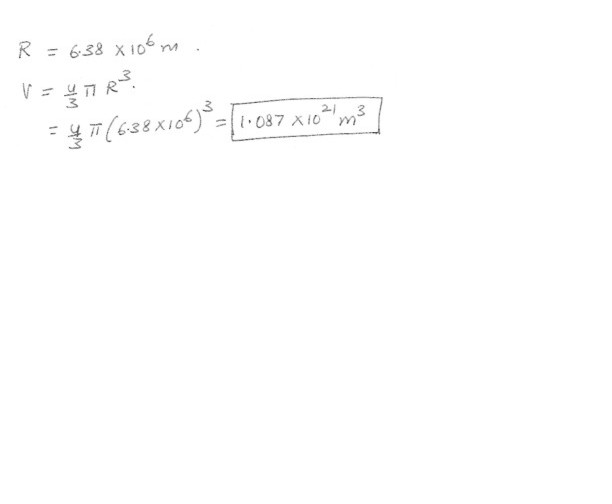 R = 6.38 × 10⁶ m .
V = 4/3 π R³.
= 4/3 π (6.38 × 10⁶)³ = 1.087 × 10²¹ m³